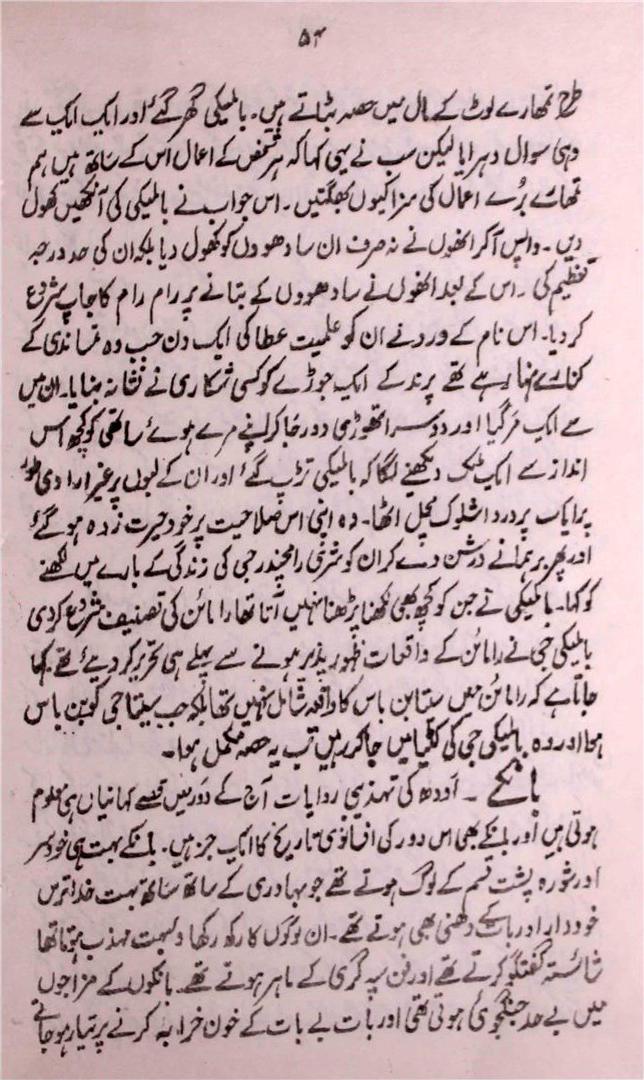 ۵۴
طرح تمھارے لوٹ کے مال میں حصہ بٹاتے ہیں۔ بالمیکی گھر گئے اور ایک ایک سے
وہی سوال دہرایا لیکن سب نے یہی کہا کہ ہر شخص کے اعمال اس کے ساتھ ہیں ہم
تمھارے بُرے اعمال کی سزا کیوں بھگتیں۔ اس جواب نے بالمیکی کی آنکھیں کھول
دیں۔ واپس آکر انھوں نے نہ صرف ان سادھووں کو کھول دیا بلکہ ان کی حد درجہ
تعظیم کی۔ اس کے بعد انھوں نے سادھووں کے بتانے پر رام رام کا جاپ شروع
کر دیا۔ اس نام کے ورد نے ان کو علمیت عطا کی ایک دن جب وہ تمساندی کے
کنارے نہا رہے تھے پرند کے ایک جوڑے کو کسی شکاری نے نشانہ بنایا۔ ان میں
سے ایک مر گیا اور دوسرا تھوڑی دور جا کر اپنے مرے ہوئے ساتھی کو کچھ اس
انداز سے ایک ٹک دیکھنے لگا کہ بالمیکی تڑپ گئے اور ان کے لبوں پر غیر ارادی طور
پر ایک پر درد اشلوک مچل اٹھا۔ وہ اپنی اس صلاحیت پر خود حیرت زدہ ہو گئے
اور پھر برہمانے درشن دے کر ان کو شری رامچندر جی کی زندگی کے بارے میں لکھنے
کو کہا۔ بالمیکی نے جن کو کچھ بھی لکھنا پڑھنا نہیں آتا تھا رامائن کی تصنیف شروع کر دی
بالمیکی جی نے رامائن کے واقعات ظہور پذیر ہونے سے پہلے ہی تحریر کر دیئے تھے۔ کہا
جاتا ہے کہ رامائن میں ستیابن باس کا واقعہ شامل نہیں تھا بلکہ جب سیتا جی کو بن باس
ہوا اور وہ بالمیکی جی کی کٹیا میں جا کر رہیں تب یہ حصہ مکمل ہوا۔
بانکے ۔ اَودھ کی تہذیبی روایات آج کے دَور میں قصے کہانیاں ہی معلوم
ہوتی ہیں اور بانکے بھی اس دور کی افسانوی تاریخ کا ایک جز ہیں۔ بانکے بہت ہی خود سر
اور شورہ پشت قسم کے لوگ ہوتے تھے جو بہادری کے ساتھ ساتھ بہت خدا ترس
خوددار اور بات کے دھنی بھی ہوتے تھے۔ ان لوگوں کا رکھ رکھاو بہت مہذب ہوتا تھا
شائستہ گفتگو کرتے تھے اور فن سپہ گری کے ماہر ہوتے تھے۔ بانکوں کے مزاجوں
میں بے حد جنگجوئی ہوتی تھی اور بات بے بات کے خون خرابہ کرنے پر تیار ہو جاتے